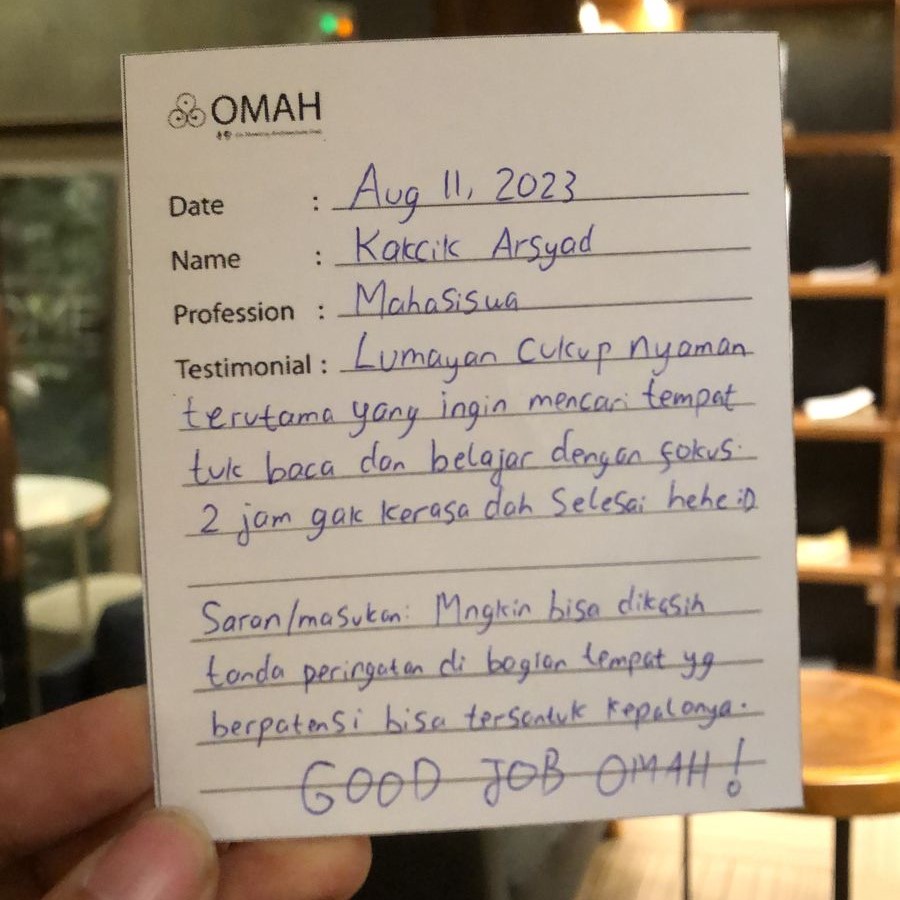 OMAH
Date : Aug 11, 2023
Name : Kakcik Arsyad
Profession : Mahasiswa
Testimonial : Lumayan Cukup nyaman
terutama yang ingin mencari tempat
tuk baca dan belajar dengan fokus.
2 jam gak kerasa dah Selesai hehe :D
Saran/masukan: Mngkin bisa dikasih
tanda peringatan di bagian tempat yg
berpatensi bisa tersantuk kepalanya.
GOOD JOB OMAH!